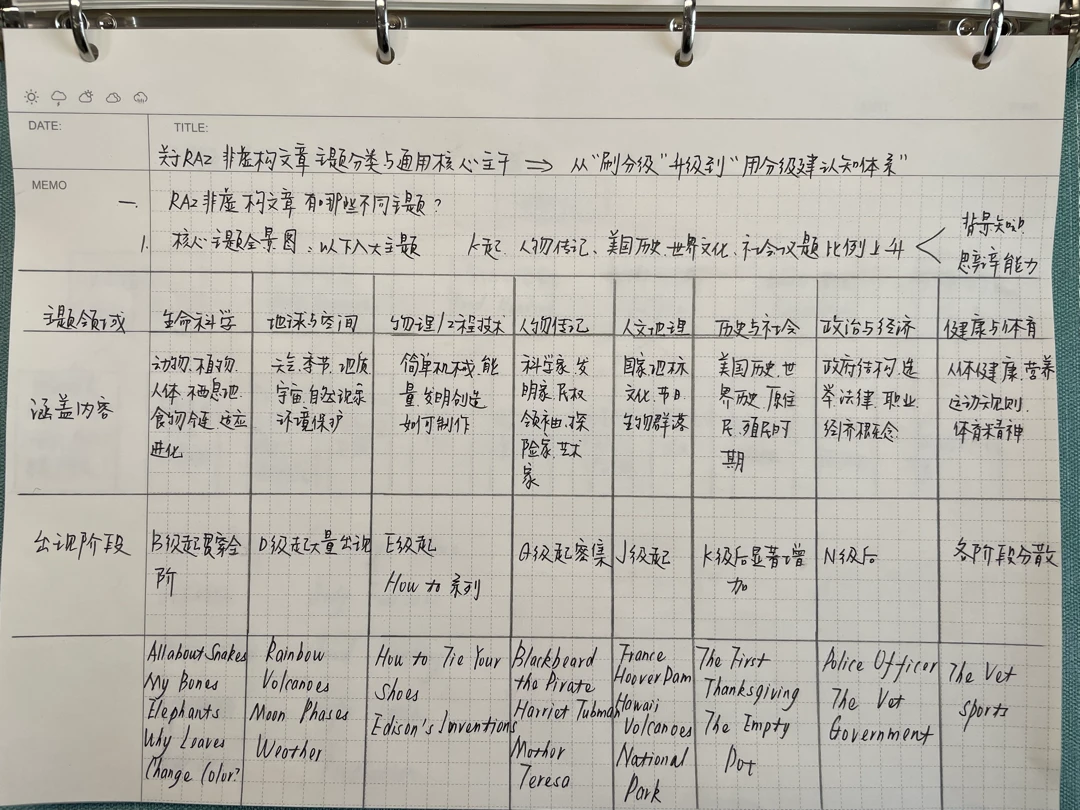 DATE:
TITLE:
关于RAZ 非虚构文章主题分类与通用核心主干 ⇒ 从"刷分级"升级到"用分级建认知体系"
MEMO
一. RAZ非虚构文章有哪些不同主题?
1. 核心主题全景图:以下八大主题 K起 人物传记、美国历史.世界文化、社会议题比例上升 < 背景知识
思辨能力
主题领域 生命科学 地球与空间 物理/工程技术 人物传记 人文地理 历史与社会 政治与经济 健康与体育
涵盖内容
动物.植物.
人体.栖息地.
食物链.适应
进化
天气.季节.地质
宇宙.自然现象
环境保护
简单机械.能
量.发明创造
如何制作
科学家.发
明家.民权
领袖.探
险家.艺术
家
国家地标
文化.节日
生物群落
美国历史.世
界历史.原住
民.殖民时
期
政府结构.选
举.法律.职业
经济概念
人体健康.营养
运动规则.
体育精神
出现阶段
B级起贯穿全
阶
D级起大量出现
E级起
How to 系列
G级起密集
J级起
K级后显著增
加
N级后
各阶段分散
All about Snakes
My Bones
Elephants
Why Leaves
Change Color?
Rainbow
Volcanoes
Moon Phases
Weather
How to Tie Your
Shoes
Edison's Inventions
Blackbeard
the Pirate
Harriet Tubman
Mother
Teresa
France
Hoover Dam
Hawaii
Volcanoes
National
Park
The First
Thanksgiving
The Empty
Pot
Police Officer
The Vet
Government
The Vet
sports